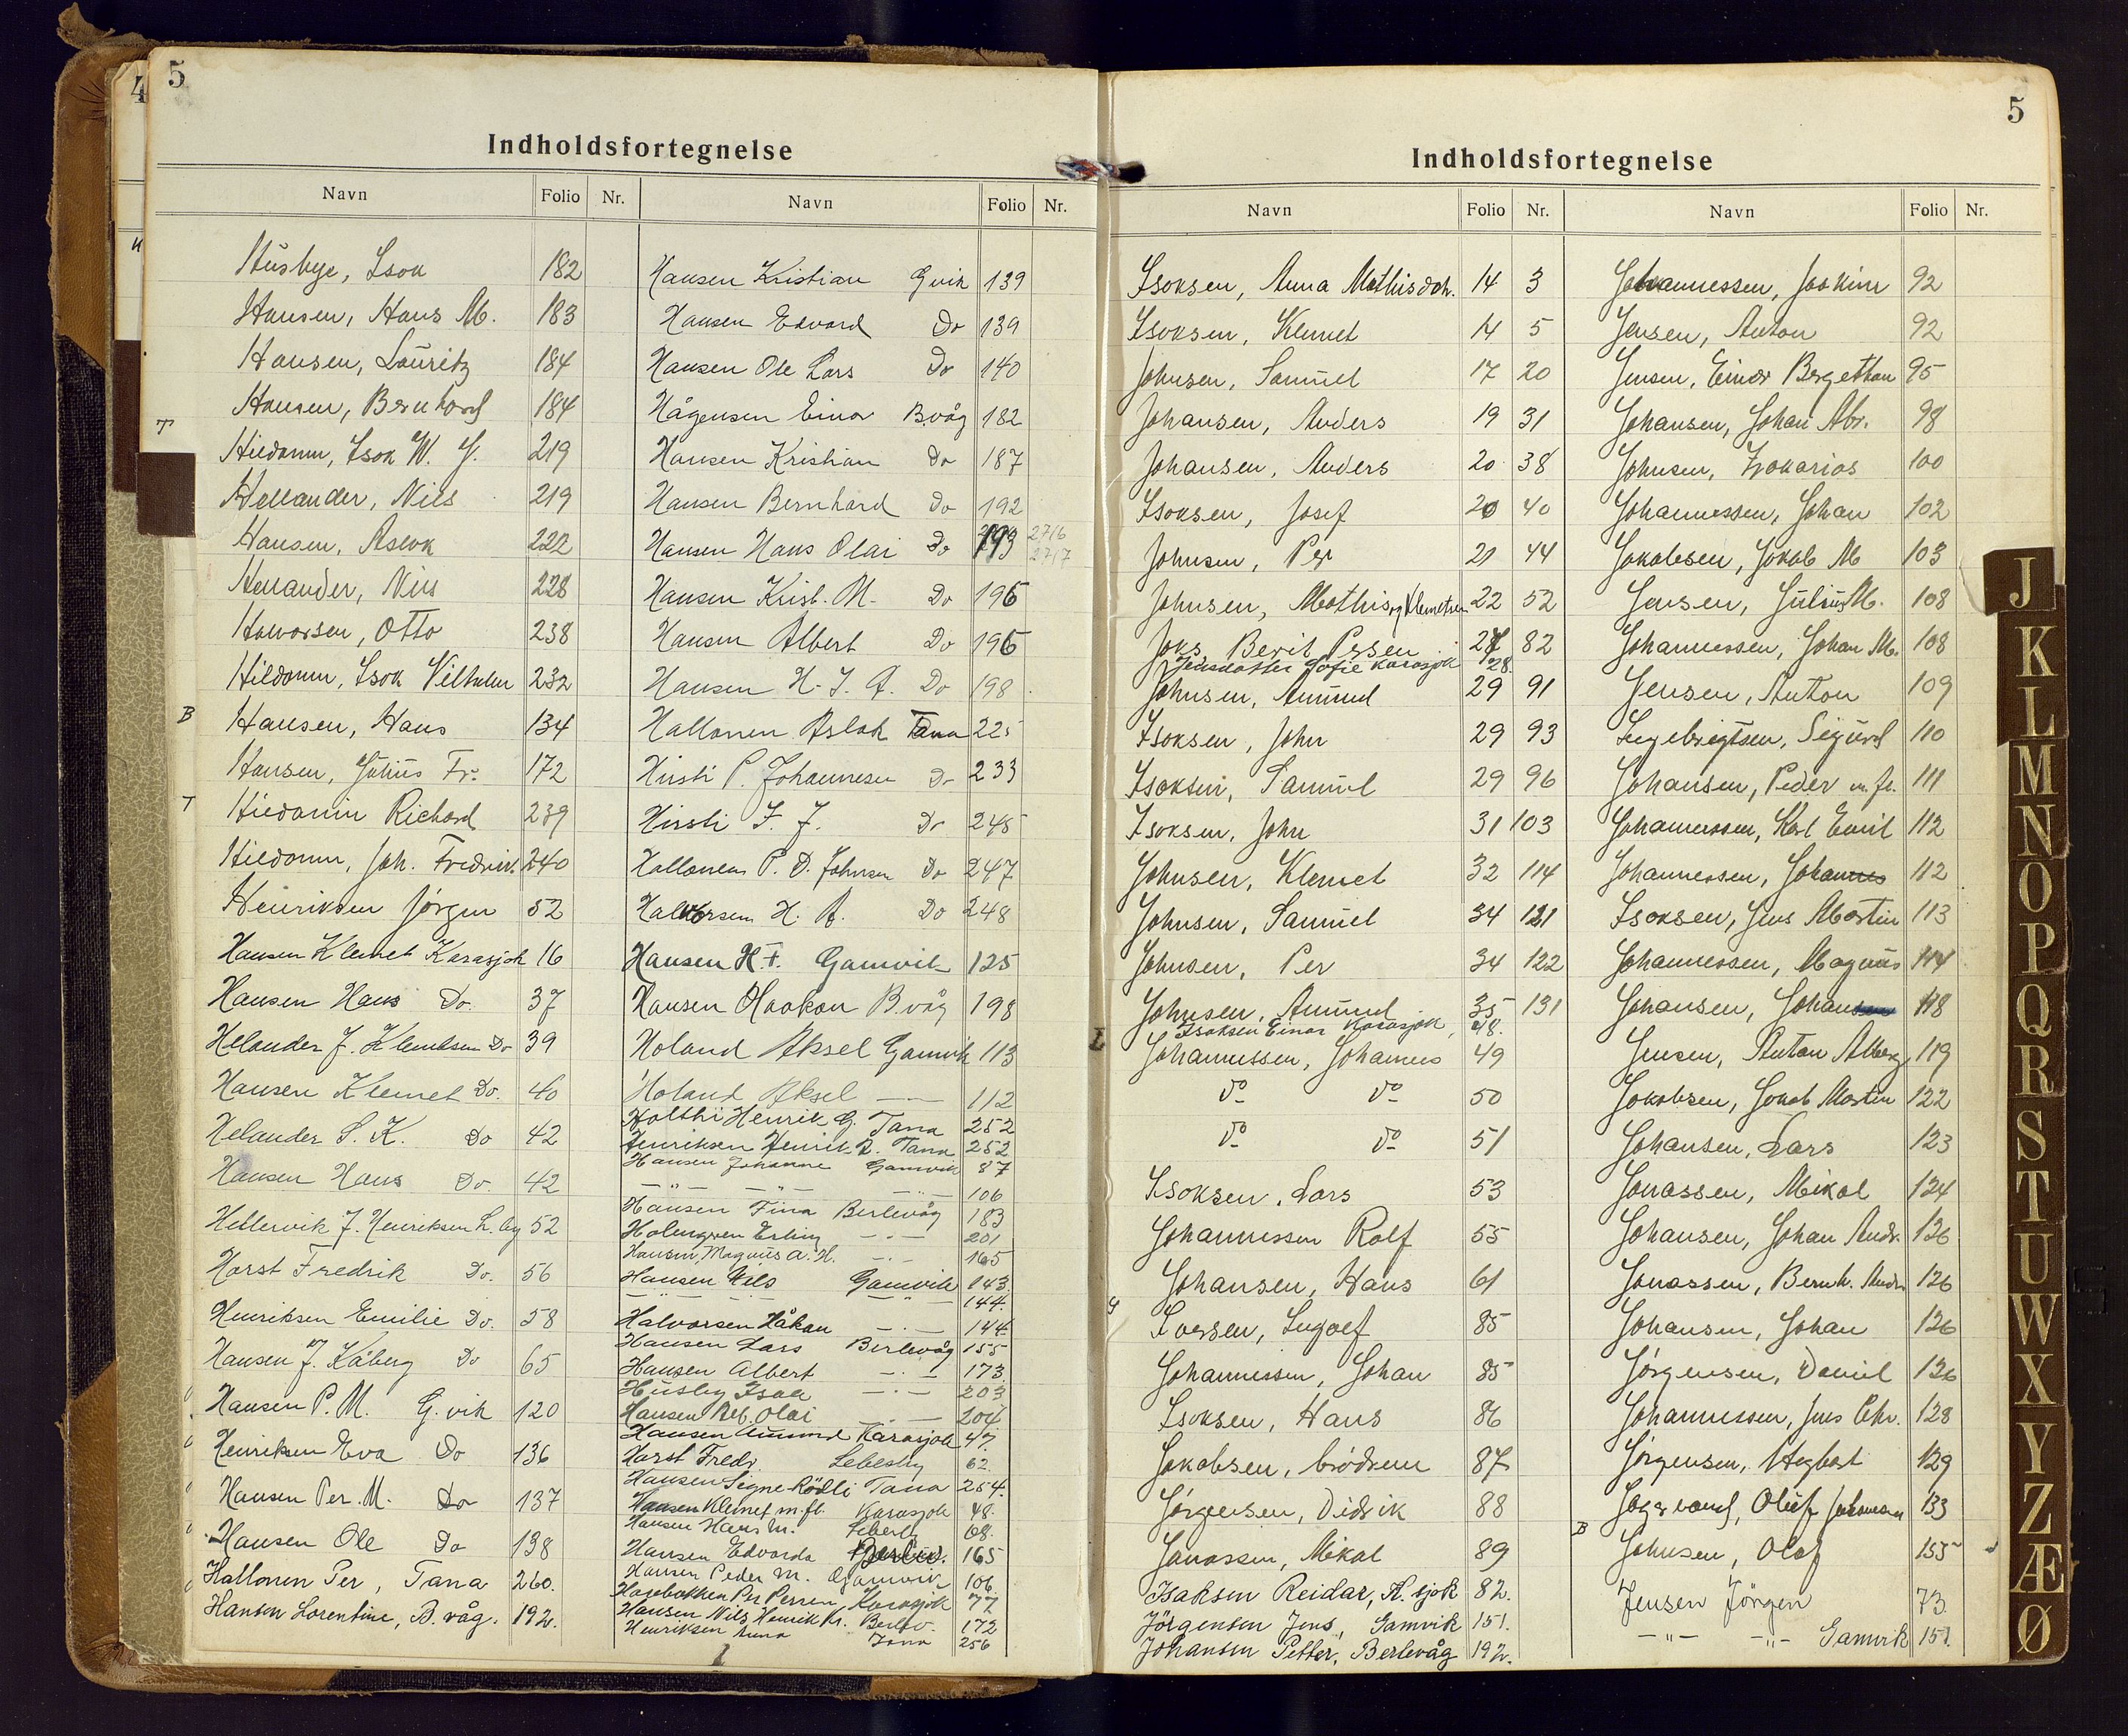 4
5
Indholdsfortegnelse
Navn Folio Nr. Navn Folio Nr.
Husbye, Isak 182
Hansen, Hans M. 183
Hansen, Lauritz 184
Hansen, Bernhard 184
T
Hildonen, Isak W. J. 219
Hellander, Nils 219
Hansen, Aslak 222
Hellander, Nils 228
Halvorsen, Otto 238
Hildonen, Isak Vilhelm 232
B
Hansen, Hans 134
Hansen, Julius Fr. 172
T
Hildonen Richard 239
Hildonen, Joh. Fredrik 240
Henriksen Jørgen 52
Hansen Klemet Karasjok 16
Hansen Hans Do. 37
Helander J. Klemetsen Do 39
Hansen Klemet Do. 40
Helander S. K. Do 42
Hansen Hans Do 42
Hellervik J. Henriksen L.by 52
Horst Fredrik Do. 56
Henriksen Emilie Do. 58
Hansen J. Kåberg Do 65
Hansen P. M. G.vik 120
Henriksen Eva Do 136
Hansen Per. M. Do 137
Hansen Ole Do 138
Hallonen Per, Tana 260.
Hansen Lorentine, B.våg. 192.
Hansen Kristian Gvik 139
Hansen Edvard Do 139
Hansen Ole Lars Do 140
Hågensen Einar Bvåg 182
Hansen Kristian Do 187
Hansen Bernhard Do 192
Hansen Hans Olai Do 193 2716 2717
Hansen Krist. M. Do 196
Hansen Albert Do 196
Hansen H. J. A. Do 198
Hallonen Aslak Tana 225
Hirsti P. Johannesen Do 233
Hirsti I. J. Do 245
Hallonen P. D. Johnsen Do 247
Halvorsen H. A. Do 248
Hansen H. F. Gamvik 125
Hansen Haakon B.våg 198
Holand Aksel Gamvik 113
Holand Aksel — 112
Holthi Henrik G. Tana 252
Henriksen Henrik A. Tana 252
Hansen Johanne Gamvik 87
—"— —"— —"— 106
Hansen Tina Berlevåg 183
Holmgren Erling —·— 201
Hansen, Magnus A. H. —·— 165
Hansen Nils Gamvik 143
—"— —"— —"— 144.
Halvorsen Håkan —·— 144
Hansen Lars Berlevåg 155
Hansen Albert —·— 173
Husby Isak —·— 203
Hansen Olai —·— 204
Hansen Amund Karasjok 47.
Horst Fredr. Lebesby 62
Hansen Signe Rödli Tana 254.
Hansen Klemet m.fl. Karasjok 48.
Hansen Hans M. Lebesby 68.
Hansen Edvarda Berlev. 165
Hansen Peder M. Gamvik 106
Per Persen, Karasjok 77
Hansen Nils Henrik Kr. Berlev. 172
Henriksen Anna Tana 256
5
Indholdsfortegnelse
Navn Folio Nr. Navn Folio Nr.
Isaksen, Anna Mathisdatr. 14 3
Isaksen, Klemet 14 5
Johnsen, Samuel 17 20
Johansen, Anders 19 31
Johansen, Anders 20 38
Isaksen, Josef 20 40
Johnsen, Per 21 44
Johnsen, Mathis og Klemetsen 22 52
Joks, Berit Persen 27 82
Jensdatter Sofie Karasjok 28.
Johnsen, Amund 29 91
Isaksen, John 29 93
Isaksen, Samuel 29 96
Isaksen, John 31 103
Johnsen, Klemet 32 114
Johnsen, Samuel 34 121
Johnsen, Per 34 122
Johnsen, Amund 35 131
Isaksen Einar Karasjok, 48.
L
Johannessen, Johannes 49
do do 50
do do 51
Isaksen, Lars 53
Johannessen Rolf 55
Johansen, Hans 61
G
Iversen, Ingolf 85
Johannessen, Johan 85
Isaksen, Hans 86
Jakobsen, brödrene 87
Jørgensen, Didrik 88
Jonassen, Mikal 89
Isaksen Reidar, K.sjok 82.
Jörgensen Jens, Gamvik 151.
Johansen Petter, Berlevåg 192.
Johannessen, Joakim 92
Jensen, Anton 92
Jensen, Einar Bergethon 95
Johansen, Johan Abr. 98
Johnsen, Zakarias 100
Johannessen, Johan 102
Jakobsen, Jakob M 103
Jensen, Julius M. 108
Johannessen, Johan M. 108
Jensen, Anton 109
Ingebrigtsen, Sigurd 110
Johansen, Peder m.fl. 111
Johannessen, Karl Emil 112
Johannessen, Johannes 112
Isaksen, Jens Martin 113
Johannessen, Magnus 114
Johansen, Johan 118
Jensen, Anton Alberg 119
Jakobsen, Jakob Martin 122
Johansen, Lars 123
Jonassen, Mikal 124
Johansen, Johan Andr. 126
Jonassen, Bernh. Andr. 126
Johansen, Johan 126
Jørgensen, Daniel 126
Johannessen, Jens Chr. 128
Jørgensen, Hegbart 129
Oluf Johannesen 133
B
Johnsen, Olaf 155
Jensen Jörgen 73.
—"— —"— Gamvik 151.
J
K
L
M
N
O
P
Q
R
S
T
U
W
X
Y
Z
Æ
Ø